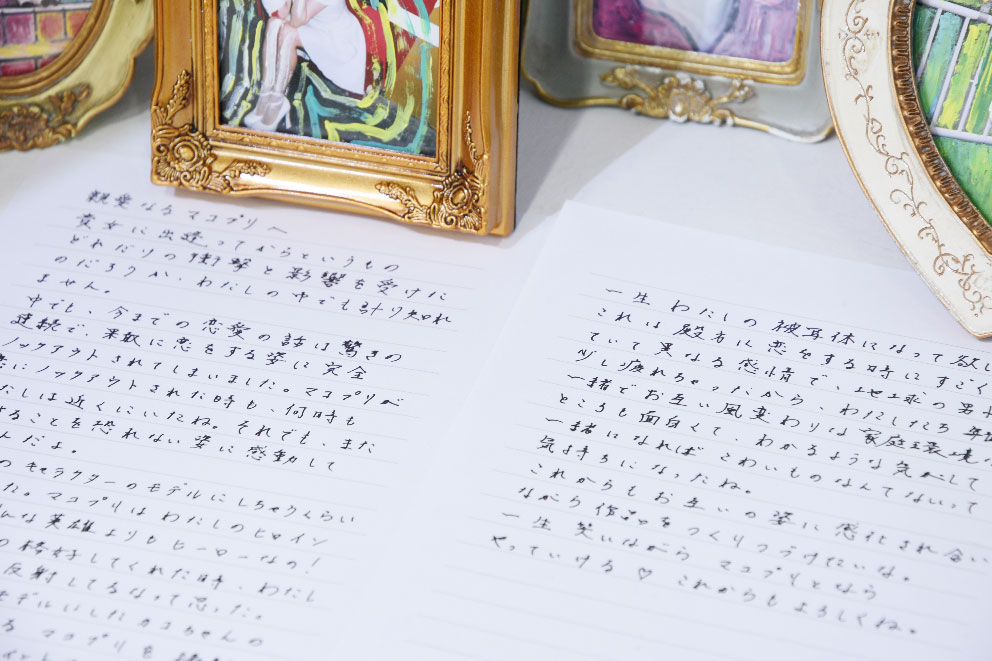 親愛なるマコプリへ
貴女に出逢ってからというもの
どれだけの衝撃と影響を受けた
のだろうか、わたしの中でも計り知れ
ません。
中でも、今までの恋愛の話は驚きの
連続で、果敢に恋をする姿に完全
ノックアウトされてしまいました。マコプリが
にノックアウトされた時も、何時も
たしは近くにいたね。それでも、また
することを恐れない姿に感動して
んだよ。
のキャラクターのモデルにしちゃうくらい
た。マコプリはわたしのヒロイン
んな英雄よりもヒーローなの!
の格好してくれた時、わたし
反射してるなって思った。
モデルにした ちゃんの
る マコプリを
一生 わたしの 被写体になって欲し
これは殿方に恋をする時にすごく
ていて異なる感情で、地球の男
少し疲れちゃったから、わたしたち
一緒でお互い風変わりな家庭環境
ところも面白くて、わかるような気がして
一緒になれば こわいものなんてないって
気持ちになったね。
これからもお互いの姿に感化され合い
ながら作品をつくりつづけたいな。
一生 笑いながら マコプリとなら
やっていける♡ これからもよろしくね。